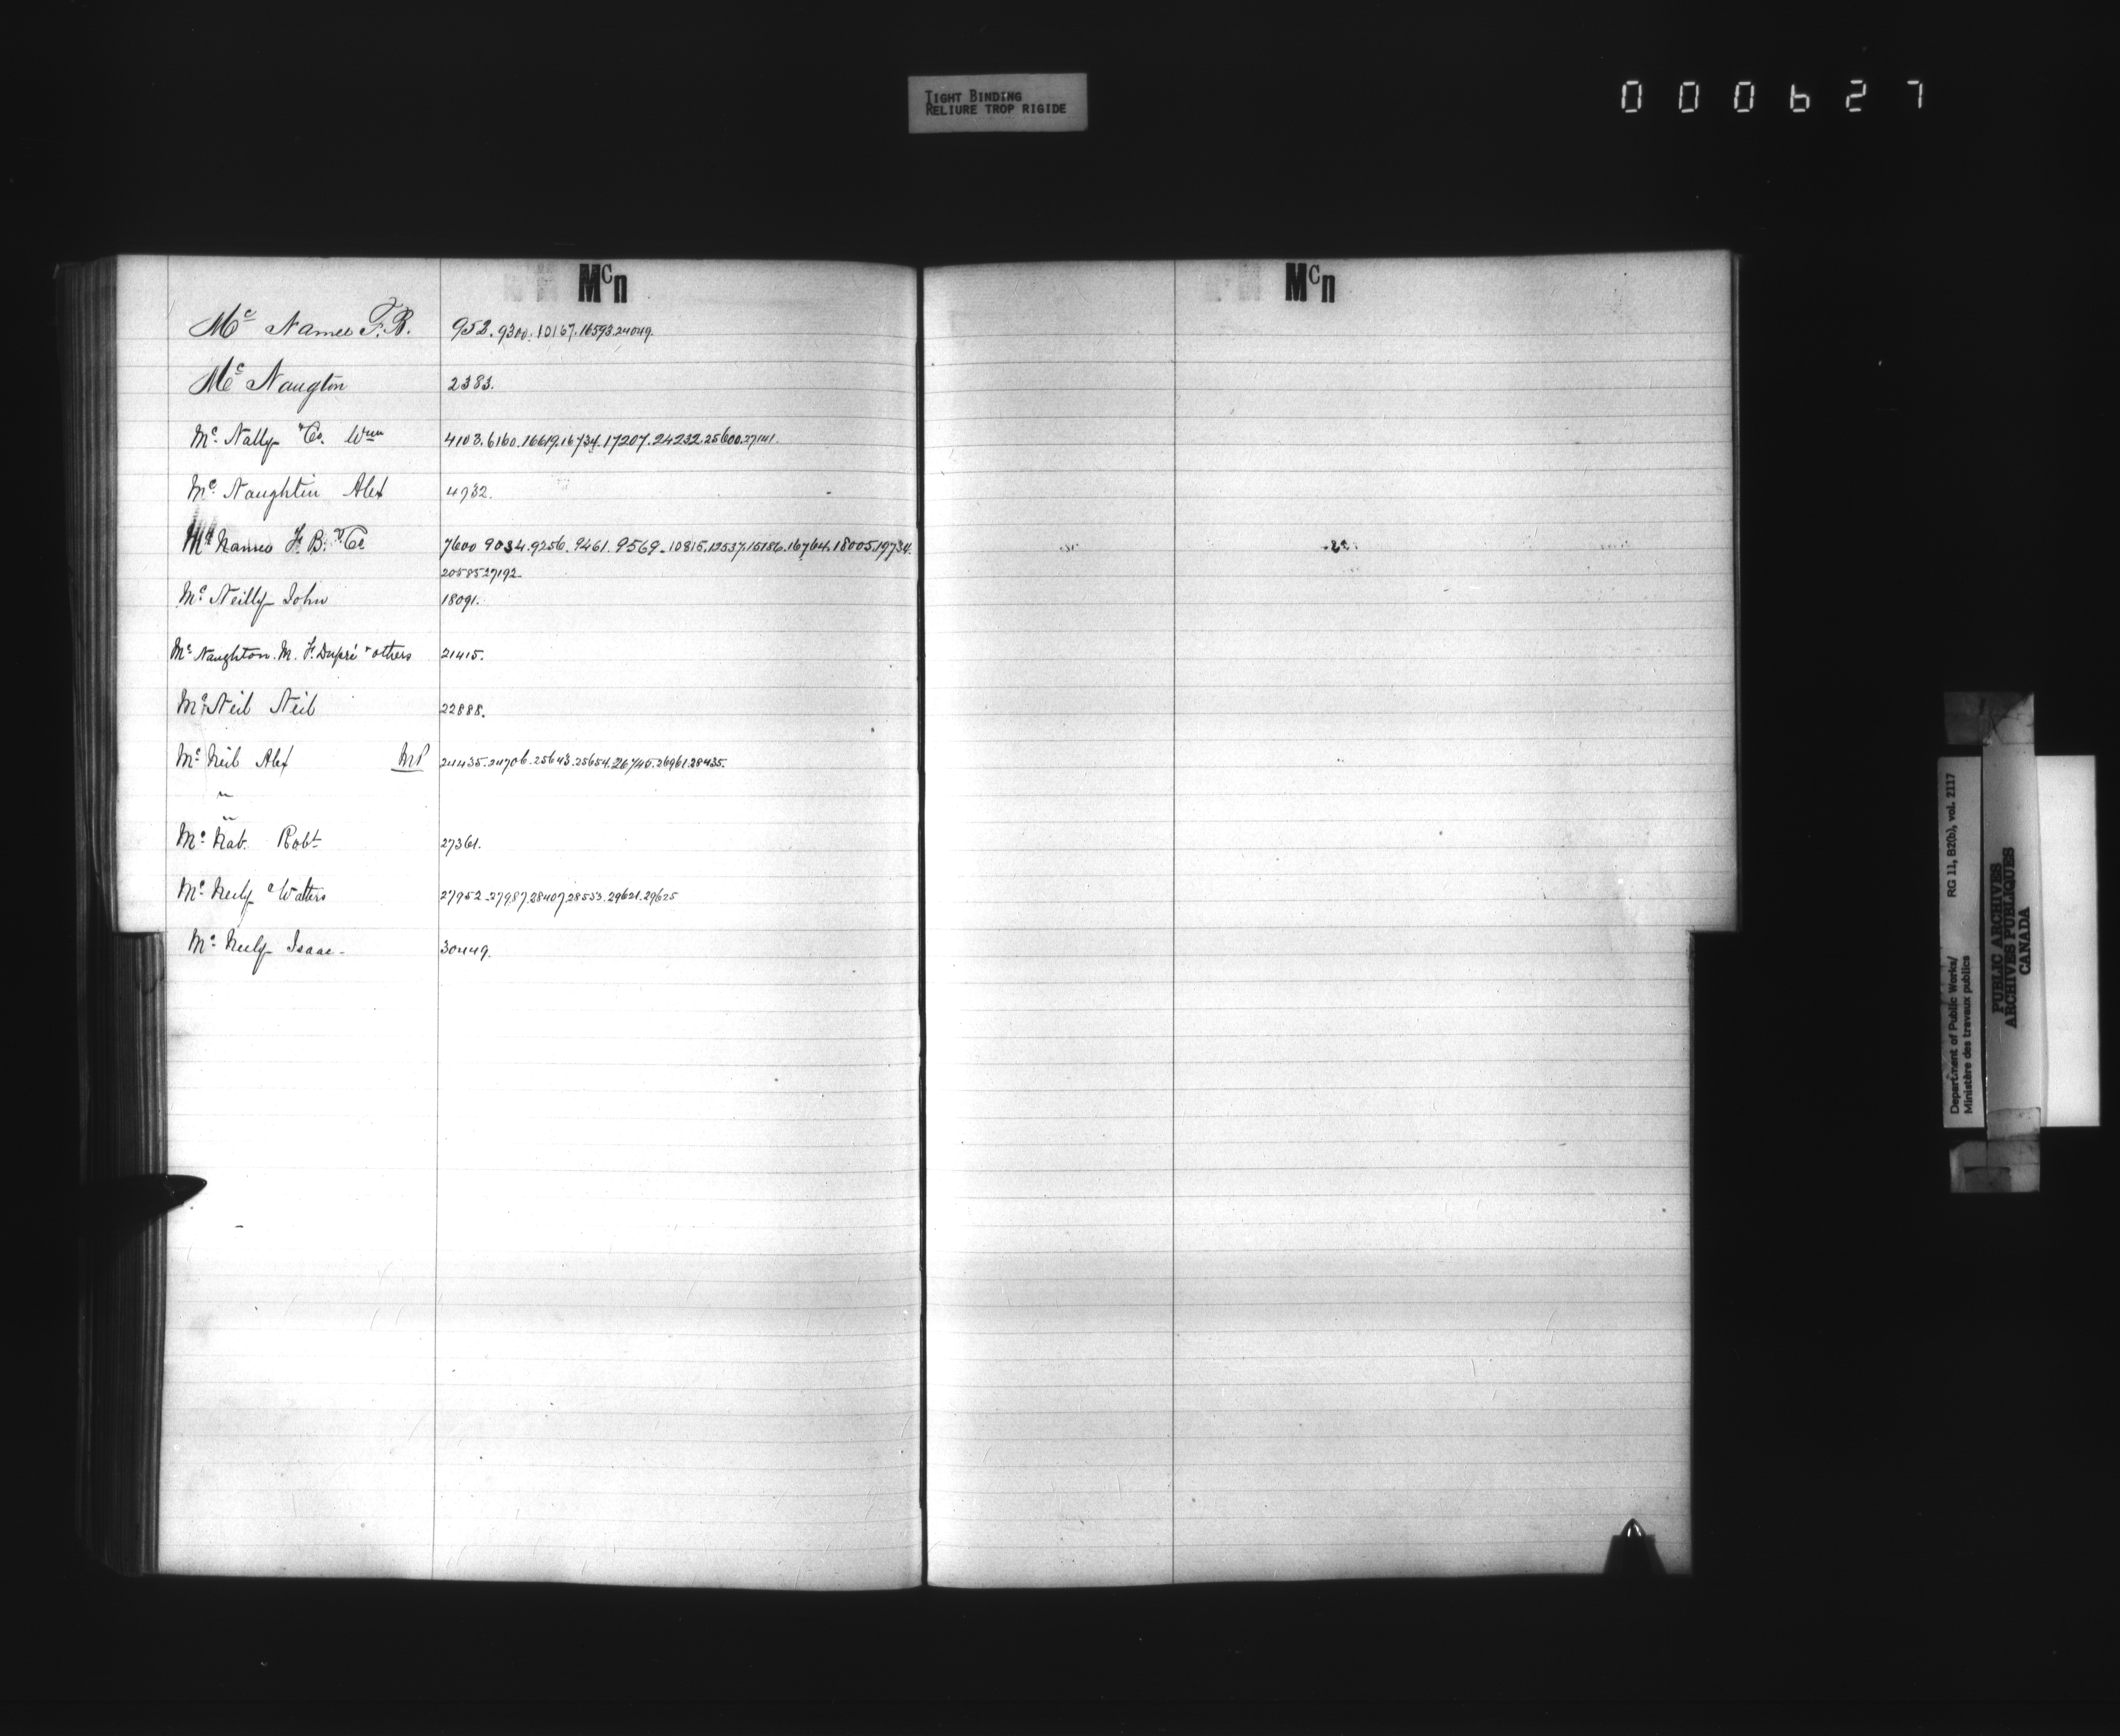 TIGHT BINDING
RELIURE TROP RIGIDE
000627
Mcn
Mcn
Mc Namee F. B. 952. 9300. 10167. 16593. 24049.
Mc Naugton 2383.
Mc Nally & Co. Wm 4103. 6160. 16619. 16734. 17207. 24232. 25600. 27141.
Mc Naughtin Alex 4932.
Mc Namee F. B. & Co 7600 9034. 9256. 9461. 9569. 10815. 12537. 15186. 16764. 18005. 19734.
20585 27192.
Mc Neilly John 18091.
Mc Naughton. M. F. Dupré & others 21415.
Mc Neil Neil 22888.
Mc Neil Alex MP 24435. 24706. 25643. 25654. 26740. 26961. 28435.
"
"
Mc Nab. Robt 27361.
Mc Neely & Walters 27952. 27987. 28407. 28533. 29621. 29625
Mc Neely Isaac- 30449.
RG 11, B2(b), vol. 2117
Department of Public Works/
Ministère des travaux publics
PUBLIC ARCHIVES
ARCHIVES PUBLIQUES
CANADA